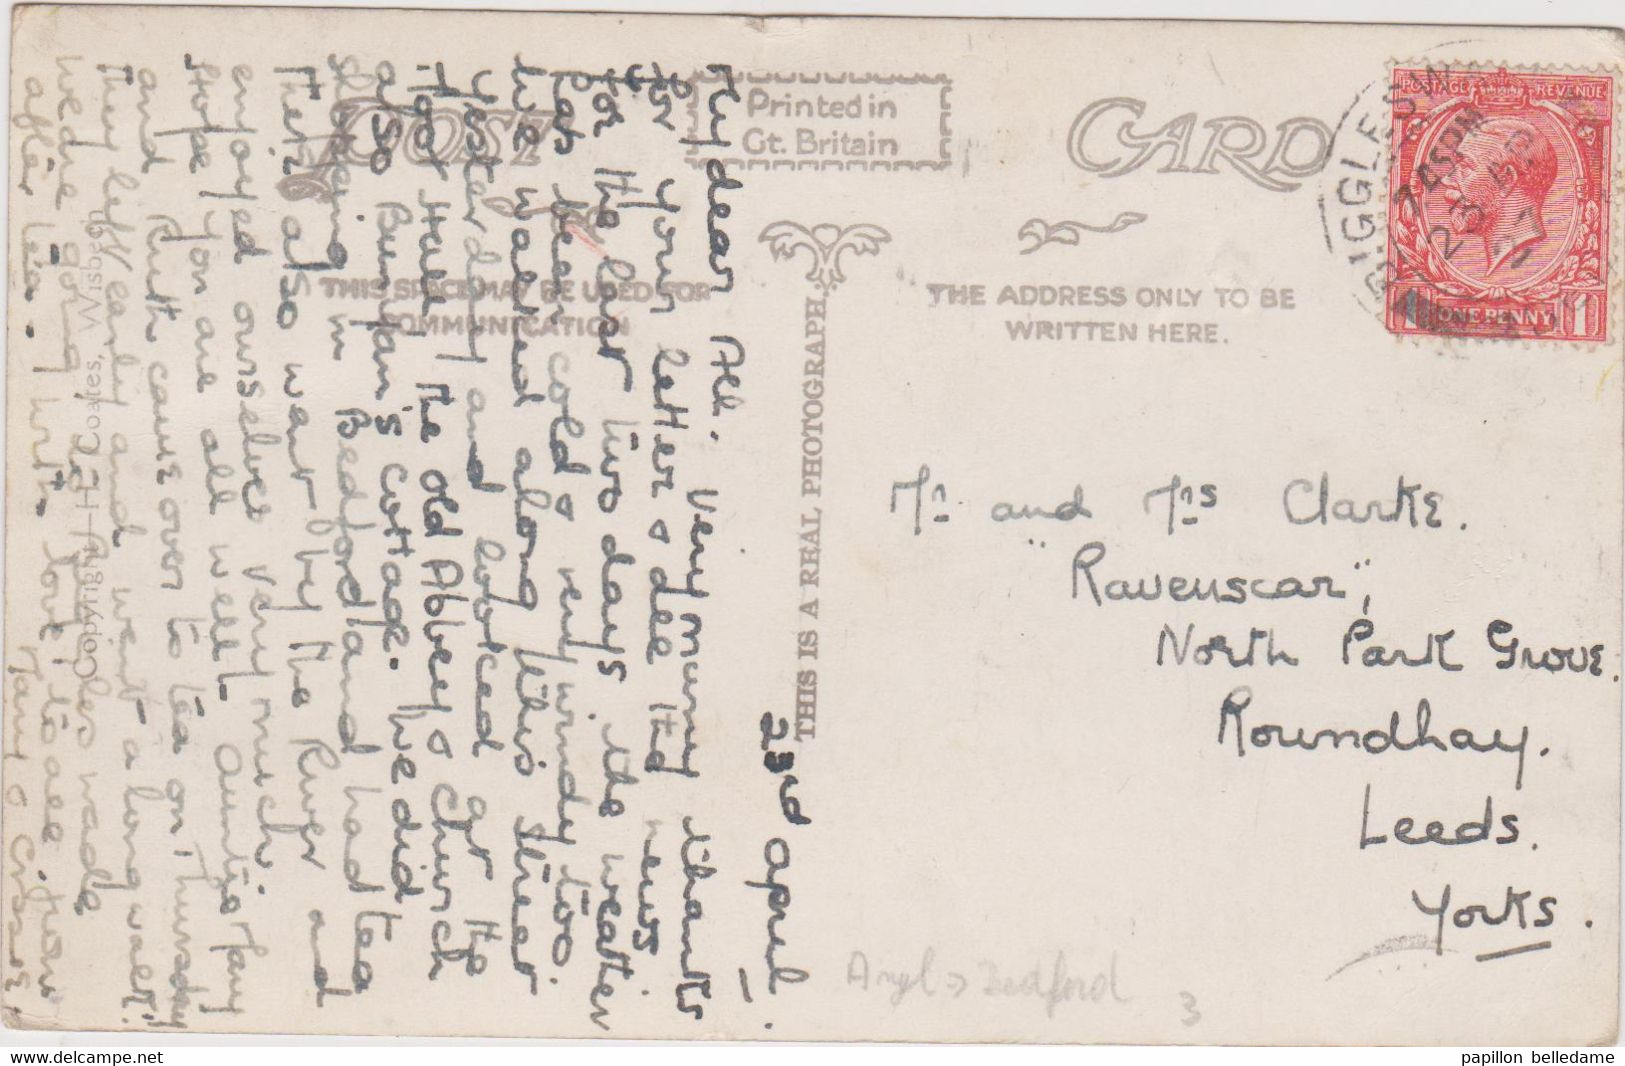 POST CARD
Printed in
Gt. Britain
THIS SPACE MAY BE USED FOR
COMMUNICATION
THE ADDRESS ONLY TO BE
WRITTEN HERE.
THIS IS A REAL PHOTOGRAPH.
Copyright H. Coates, Wisbech
POSTAGE REVENUE
ONE PENNY
BIGGLESW
7 45PM
23 AP
27
23rd April.
My dear All. Very many thanks
for your letter & all the news
for the last two days the weather
has been cold & very windy too.
We walked along this river
yesterday and looked at the
Moot Hall, the old Abbey & Church
also Bunyan's Cottage. We did
shopping in Bedford and had tea
there also went by the River and
enjoyed ourselves very much
Hope you are all well. Auntie May
and Ruth came over to tea on Thursday
they left early and went a long walk.
We are going to wade
after tea. With love to all from
Mary & Cissie.
Mr and Mrs Clarke.
"Ravenscar",
North Park Grove.
Roundhay.
Leeds.
Yorks.
Bedford
3
www.delcampe.net
papillon belledame